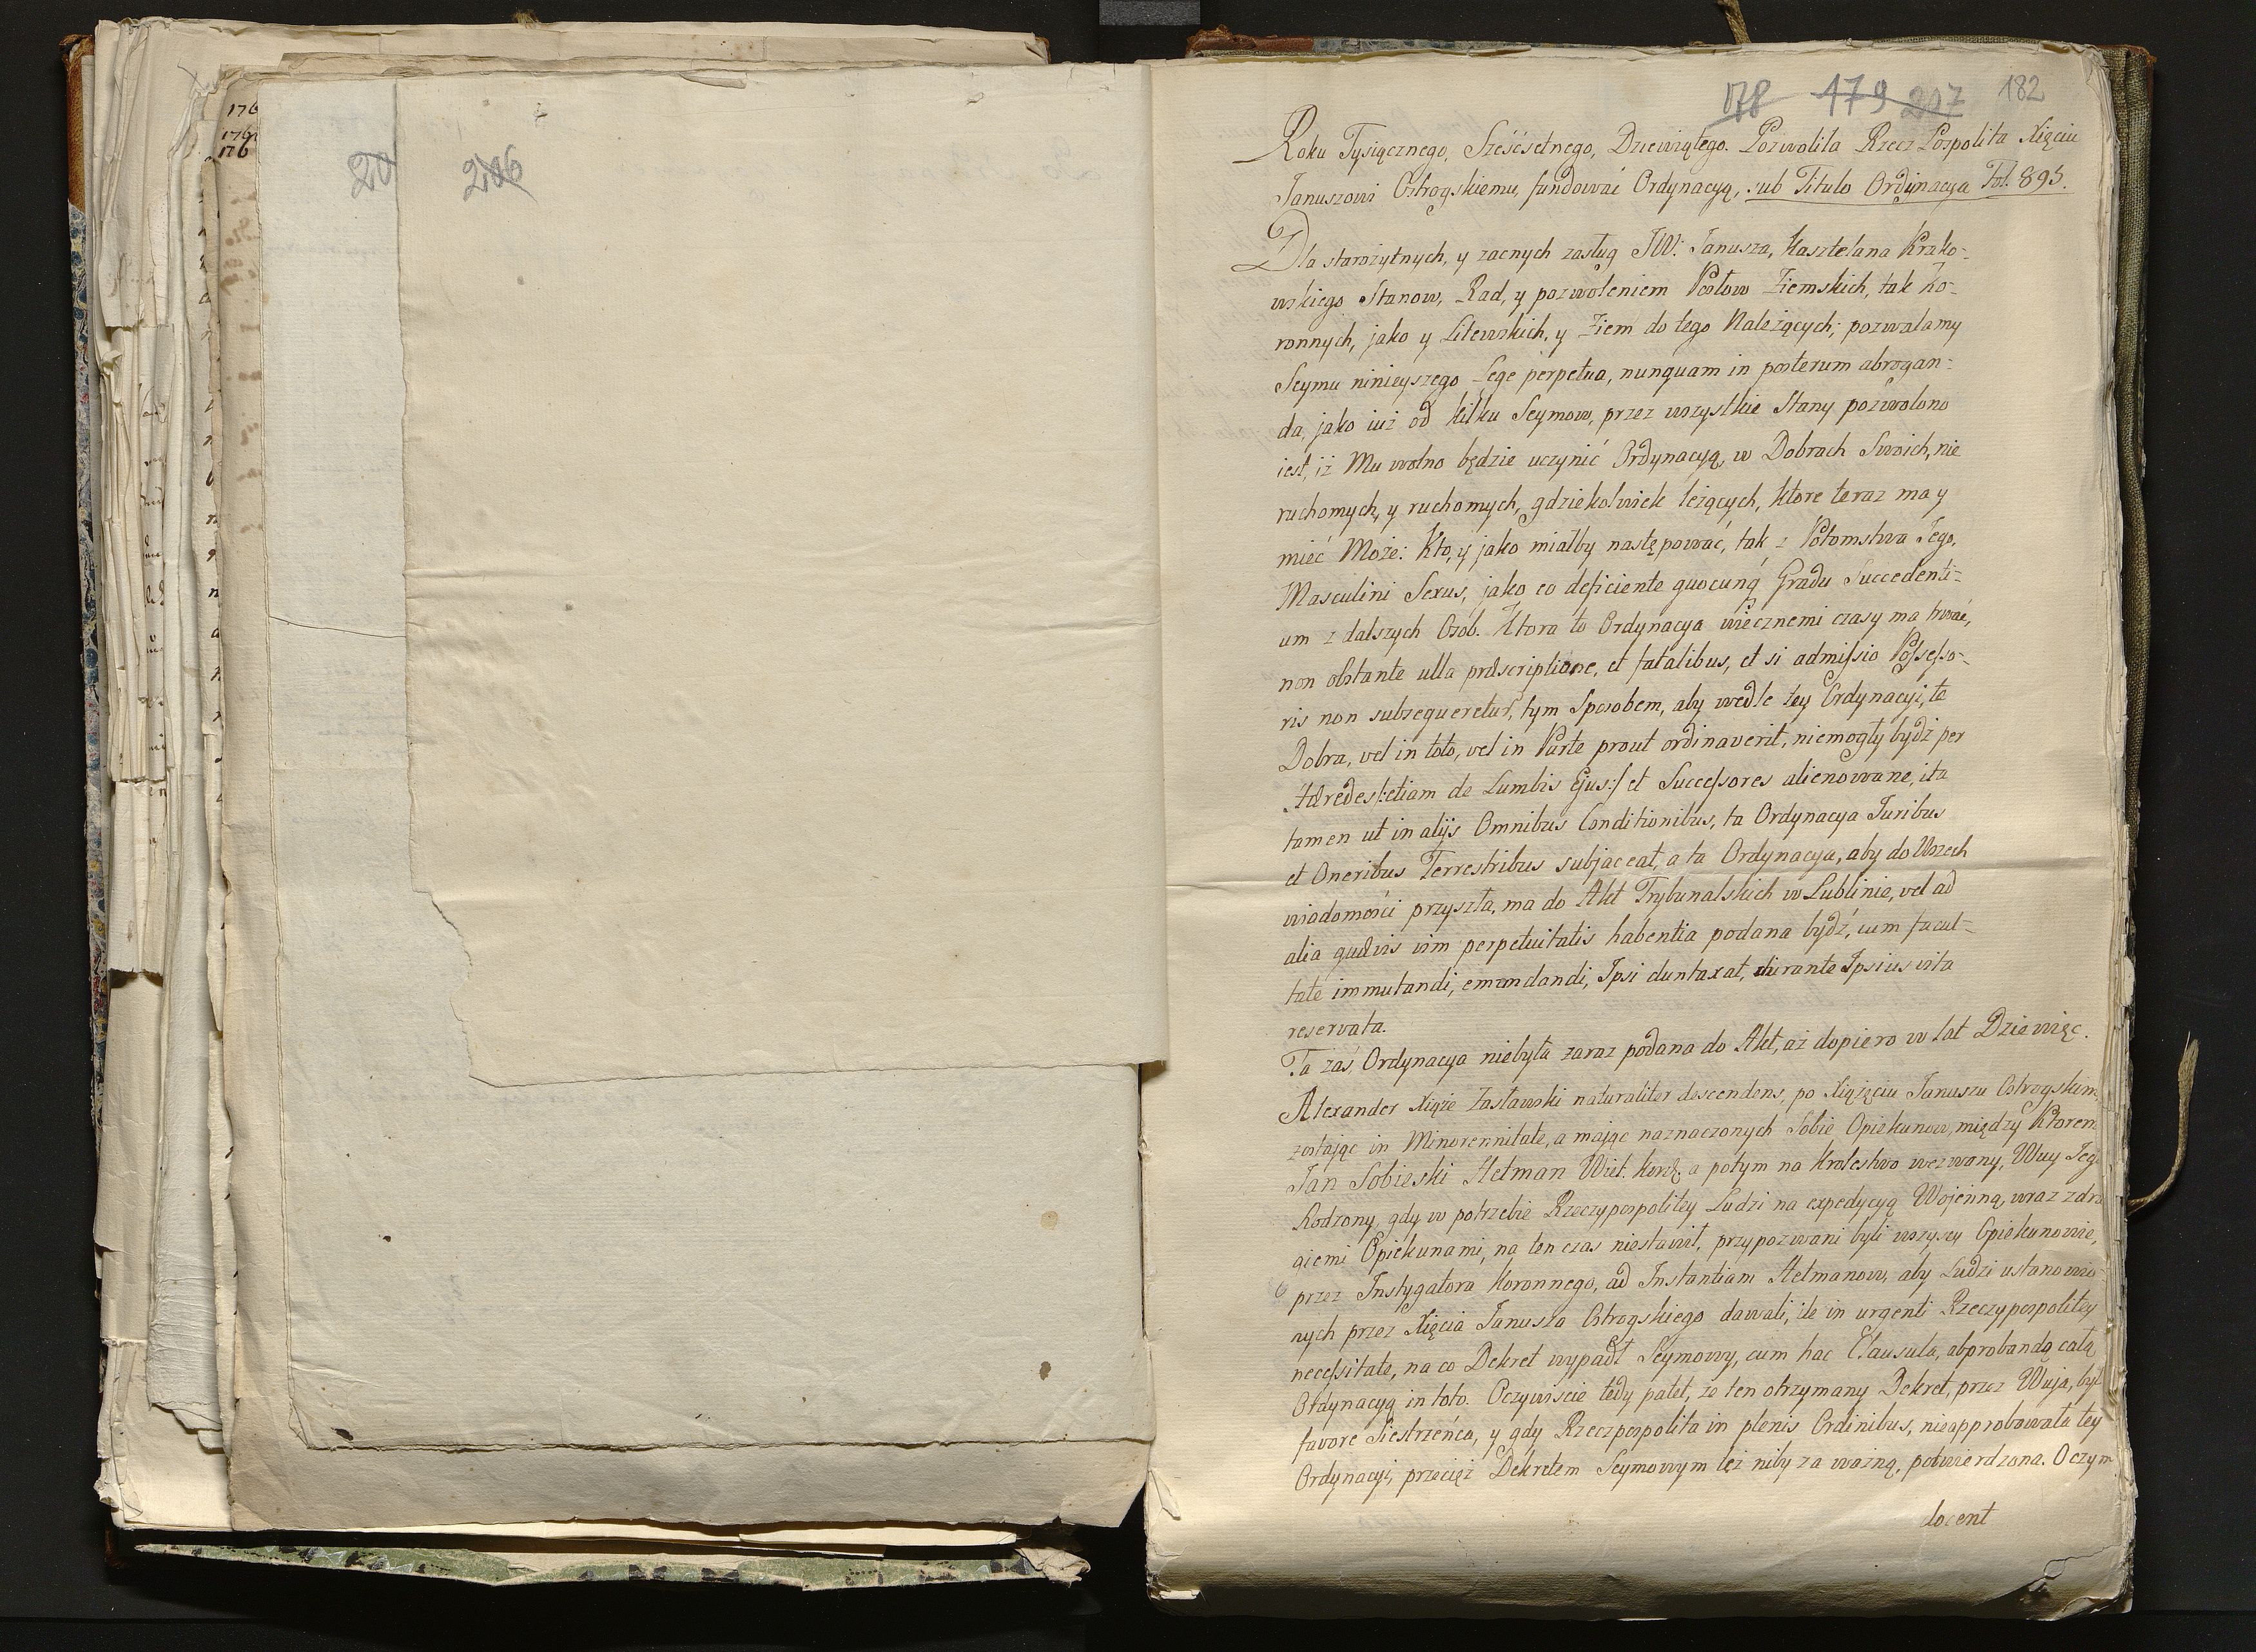 176
176
176
20
206
178 179 207 182
Roku Tysiącznego, Sześćsetnego, Dziewiątego. Pozwoliła Rzecz Pospolita Xięciu
Januszowi Ostrogskiemu, fundować Ordynacyą, sub Titulo Ordynacya Fol. 895.
Dla starożytnych, y zacnych zasług JW: Janusza, Kasztelana Krako-
wskiego Stanow, Rad, y pozwoleniem Posłow Ziemskich, tak Ko-
ronnych, jako y Litewskich, y Ziem do tego Należących; pozwalamy
Seymu ninieyszego Lege perpetua, nunquam in posterum abrogan-
da, jako iuż od kilku Seymow, przez wszystkie Stany pozwolono
iest, iż Mu wolno będzie uczynić Ordynacyą, w Dobrach Swoich, nie
ruchomych, y ruchomych, gdziekolwiek leżących, ktore teraz ma y
mieć Może: Kto, y jako miałby następować, tak z Potomstwa Jego,
Masculini Sexus, jako eo deficiente quocunq Gradu Succedenti-
um z dalszych Osob. Ktora to Ordynacya wiecznemi czasy ma trwać,
non obstante ulla præscriptione, et fatalibus, et si admissio Possesso-
ris non subsequeretur, tym Sposobem, aby wedle tey Ordynacyi, te
Dobra, vel in toto, vel in Parte prout ordinaverit, niemogły bydź per
Hæredes /:etiam de Lumbis Ejus:/ et Successores alienowane, ita
tamen ut in alijs Omnibus Conditionibus, ta Ordynacya Juribus
et Oneribus Terrestribus subjaceat, a ta Ordynacya, aby do Wszech
wiadomości przyszła, ma do Akt Trybunalskich w Lublinie, vel ad
alia quævis vim perpetuitatis habentia podana bydź, cum facul-
tate immutandi, emendandi, Ipsi duntaxat, durante Ipsius vita
reservata.
Ta zaś Ordynacya niebyła zaraz podana do Akt, aż dopiero w lat Dziewięc.
Alexander Xiąże Zasławski naturaliter descendens, po Xiążęciu Januszu Ostrogskim,
zostając in Minorennitate, a mając naznaczonych Sobie Opiekunow, między Ktorem
Jan Sobieski Hetman Wiel. Kor: a potym na Krolestwo wezwany, Wuy Jego
Rodzony, gdy w potrzebie Rzeczypospolitey Ludzi na expedycyą Wojenną, wraz z dru
giemi Opiekunami, na ten czas niestawił, przypozwani byli wszyscy Opiekunowie,
przez Instygatora Koronnego, ad Instantiam Hetmanow, aby Ludzi ustanowio-
nych przez Xięcia Janusza Ostrogskiego dawali, ile in urgenti Rzeczypospolitey
necessitate, na co Dekret wypadł Seymowy, cum hac Clausula, abprobandą całą
Ordynacyą in toto. Oczywiscie tedy patet, że ten otrzymany Dekret, przez Wuja, był
favore Siestrzeńca, y gdy Rzeczpospolita in plenis Ordinibus, nieapprobowała tey
Ordynacyi, przecięż Dekretem Seymowym też niby za ważną, potwierdzona. O czym
docent